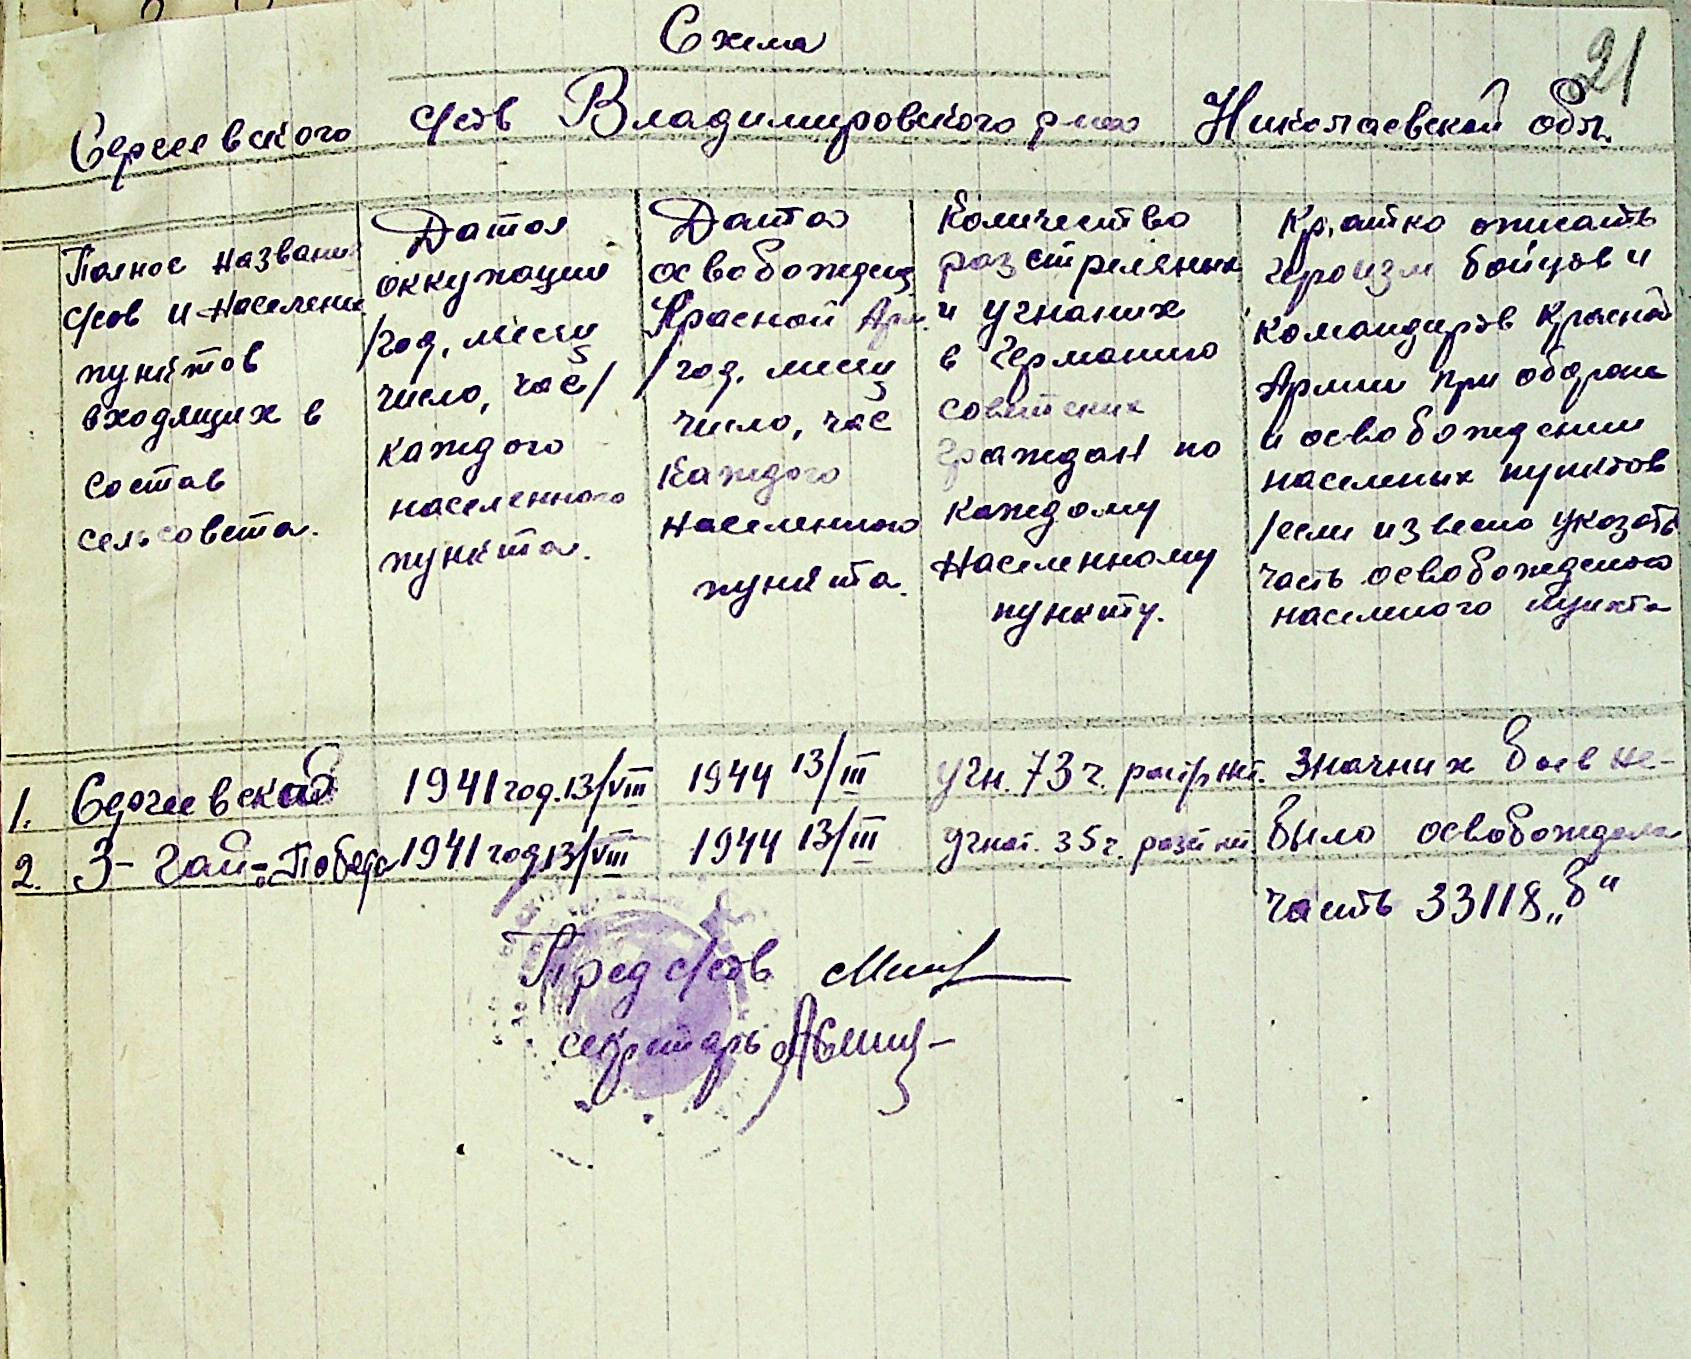 Схема
21
Сергеевского с/сов Владимировского р-на Николаевской обл.
Полное названи
с/сов и населени
пунктов
входящих в
состав
сельсовета.
Дата
оккупации
/год, месяц
число, час/
каждого
населенного
пункта.
Дата
освобожден
Красной Арм.
/год, месяц
число, час
каждого
населенного
пункта.
Количество
расстреляных
и угнаних
в Германию
советских
граждан по
каждому
населенному
пункту.
Кратко описать
героизм бойцов и
командиров Красной
Армии при обороне
и освобождении
населеных пунктов
/если извесно указать
часть освобожденого
населеного пункта
1. Сергеевской 1941 год.13/VIII 1944 13/III угн. 73 ч. раст/р нет. значних боев не-
2. 3-Гай-Победа 1941 год 13/VIII 1944 13/III угнат. 35 ч. разст нет было освобождала
часть 33118 „б"
Пред с/сов
секретарь